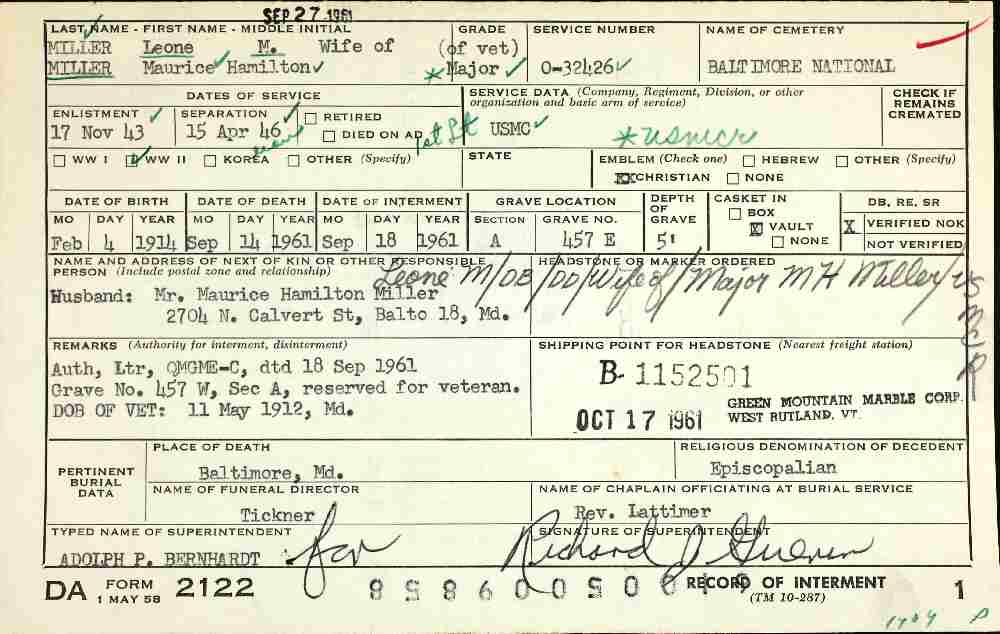 SEP 27 1961
LAST NAME - FIRST NAME - MIDDLE INITIAL
MILLER Leone M. Wife of
MILLER Maurice Hamilton
GRADE
(of vet)
*Major
SERVICE NUMBER
O-32426
NAME OF CEMETERY
BALTIMORE NATIONAL
DATES OF SERVICE
ENLISTMENT
17 Nov 43
SEPARATION
15 Apr 46
RETIRED
DIED ON AD
1st Lt
SERVICE DATA (Company, Regiment, Division, or other
organization and basic arm of service)
USMC
*USMCR
CHECK IF
REMAINS
CREMATED
WW I WW II KOREA OTHER (Specify)
STATE
EMBLEM (Check one) HEBREW OTHER (Specify)
XX CHRISTIAN NONE
DATE OF BIRTH
MO DAY YEAR
Feb 4 1914
DATE OF DEATH
MO DAY YEAR
Sep 14 1961
DATE OF INTERMENT
MO DAY YEAR
Sep 18 1961
GRAVE LOCATION
SECTION GRAVE NO.
A 457 E
DEPTH
OF
GRAVE
5'
CASKET IN
BOX
X VAULT
NONE
DB, RE, SR
X VERIFIED NOK
NOT VERIFIED
NAME AND ADDRESS OF NEXT OF KIN OR OTHER RESPONSIBLE
PERSON (Include postal zone and relationship)
Husband: Mr. Maurice Hamilton Miller
2704 N. Calvert St, Balto 18, Md.
HEADSTONE OR MARKER ORDERED
Leone M/DB/DD/Wife of/Major M H Miller/USMCR
REMARKS (Authority for interment, disinterment)
Auth, Ltr, QMGME-C, dtd 18 Sep 1961
Grave No. 457 W, Sec A, reserved for veteran.
DOB OF VET: 11 May 1912, Md.
SHIPPING POINT FOR HEADSTONE (Nearest freight station)
B- 1152501
OCT 17 1961
GREEN MOUNTAIN MARBLE CORP.
WEST RUTLAND, VT.
PERTINENT
BURIAL
DATA
PLACE OF DEATH
Baltimore, Md.
RELIGIOUS DENOMINATION OF DECEDENT
Episcopalian
NAME OF FUNERAL DIRECTOR
Tickner
NAME OF CHAPLAIN OFFICIATING AT BURIAL SERVICE
Rev. Lattimer
TYPED NAME OF SUPERINTENDENT
ADOLPH P. BERNHARDT
for
SIGNATURE OF SUPERINTENDENT
Richard J
DA FORM 2122
1 MAY 58
RECORD OF INTERMENT
(TM 10-287)
1